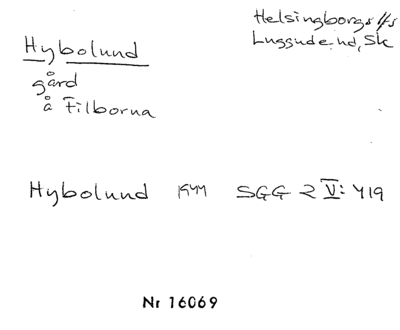 Hybolund
gård
å Filborna
Helsingborgs l/s
Luggude hd, Sk
Hybolund 1944 SGG 2 V: 419
Nr 16069